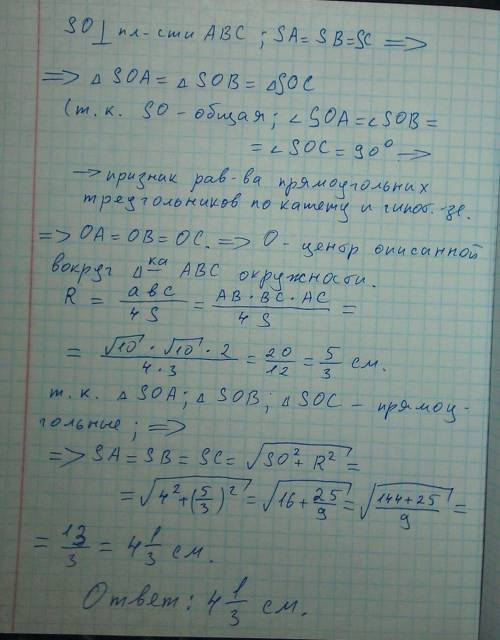 SO ⊥ пл-сти ABC ; SA = SB = SC =>
=> △ SOA = △ SOB = △SOC
(т.к. SO - общая; ∠SOA = ∠SOB =
= ∠SOC = 90° →
→ признак рав-ва прямоугольных
треугольников по катету и гипот.-зе.
=> OA = OB = OC. => O - центр описанной
вокруг △ка ABC окружности.
R = abc/4S = AB · BC · AC/4S =
= √10 · √10 · 2/4 · 3 = 20/12 = 5/3 см.
т.к. △ SOA; △ SOB; △ SOC - прямоу-
гольные; =>
=> SA = SB = SC = √(SO² + R²) =
= √(4² + (5/3)²) = √(16 + 25/9) = √((144+25)/9) =
= 13/3 = 4 1/3 см.
Ответ: 4 1/3 см.